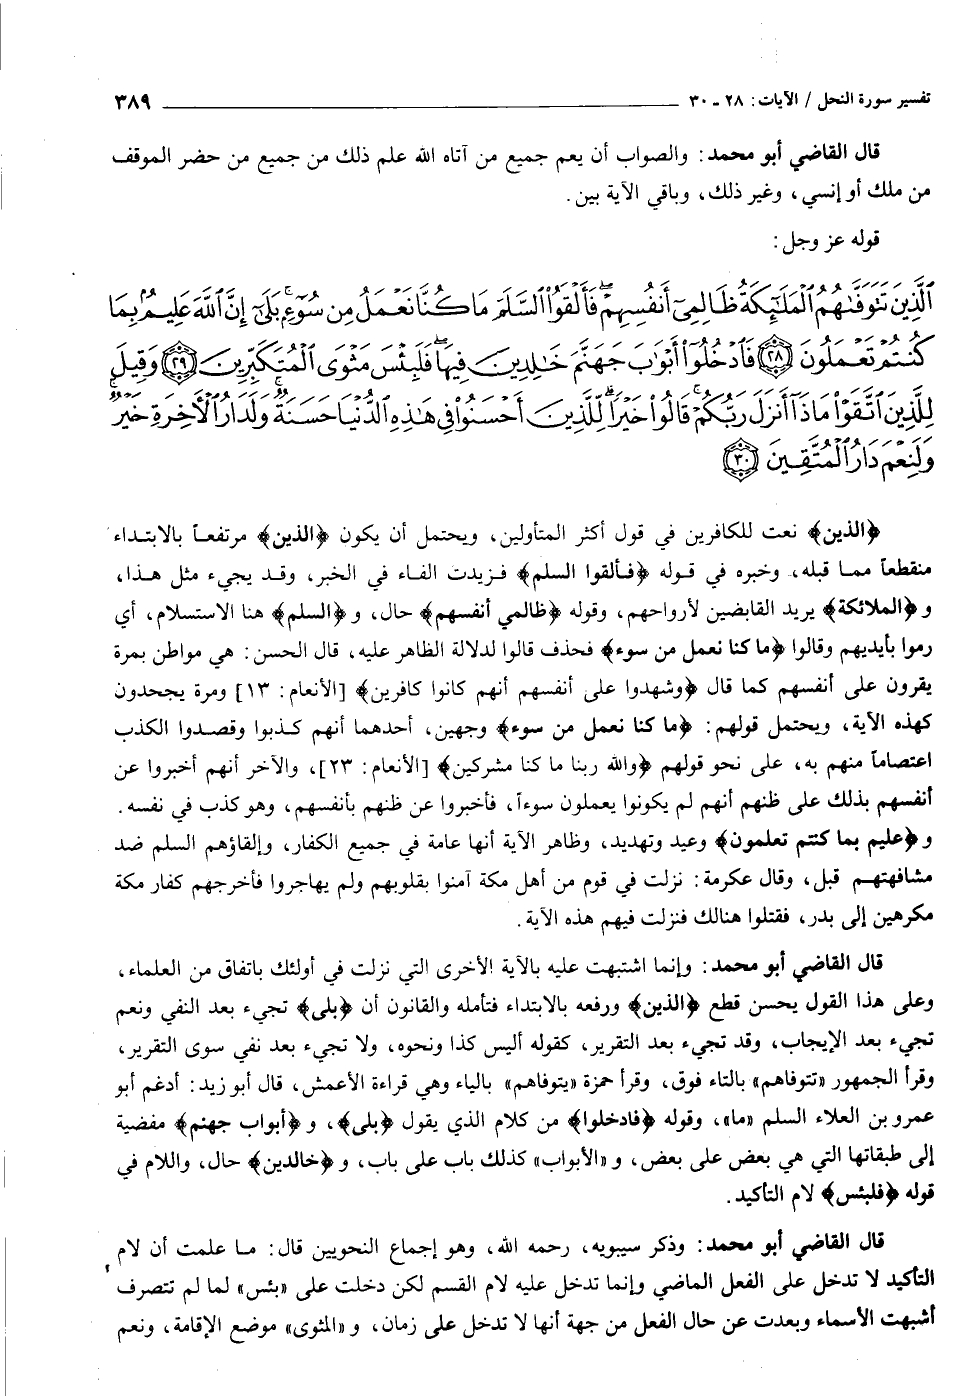 تفسير سورة النحل / الآيات: ٢٨ - ٣٠ ٣٨٩
قال القاضي أبو محمد: والصواب أن يعم جميع من آتاه الله علم ذلك من جميع من حضر الموقف
من ملك أو إنسي، وغير ذلك، وباقي الآية بين.
قوله عز وجل:
ٱلَّذِينَ تَتَوَفَّىٰهُمُ ٱلْمَلَٰٓئِكَةُ ظَالِمِىٓ أَنفُسِهِمْ ۖ فَأَلْقَوُا۟ ٱلسَّلَمَ مَا كُنَّا نَعْمَلُ مِن سُوٓءٍۭ ۚ بَلَىٰٓ إِنَّ ٱللَّهَ عَلِيمٌۢ بِمَا
كُنتُمْ تَعْمَلُونَ ﴿٢٨﴾ فَٱدْخُلُوٓا۟ أَبْوَٰبَ جَهَنَّمَ خَٰلِدِينَ فِيهَا ۖ فَلَبِئْسَ مَثْوَى ٱلْمُتَكَبِّرِينَ ﴿٢٩﴾ وَقِيلَ
لِلَّذِينَ ٱتَّقَوْا۟ مَاذَآ أَنزَلَ رَبُّكُمْ ۚ قَالُوا۟ خَيْرًا ۗ لِّلَّذِينَ أَحْسَنُوا۟ فِى هَٰذِهِ ٱلدُّنْيَا حَسَنَةٌ ۚ وَلَدَارُ ٱلْءَاخِرَةِ خَيْرٌ ۚ
وَلَنِعْمَ دَارُ ٱلْمُتَّقِينَ ﴿٣٠﴾
﴿الذين﴾ نعت للكافرين في قول أكثر المتأولين، ويحتمل أن يكون ﴿الذين﴾ مرتفعاً بالابتداء
منقطعاً مما قبله، وخبره في قوله ﴿فألقوا السلم﴾ فزيدت الفاء في الخبر، وقد يجيء مثل هذا،
و﴿الملائكة﴾ يريد القابضين لأرواحهم، وقوله ﴿ظالمي أنفسهم﴾ حال، و﴿السلم﴾ هنا الاستسلام، أي
رموا بأيديهم وقالوا ﴿ما كنا نعمل من سوء﴾ فحذف قالوا لدلالة الظاهر عليه، قال الحسن: هي مواطن بمرة
يقرون على أنفسهم كما قال ﴿وشهدوا على أنفسهم أنهم كانوا كافرين﴾ [الأنعام: ١٣] ومرة يجحدون
كهذه الآية، ويحتمل قولهم: ﴿ما كنا نعمل من سوء﴾ وجهين، أحدهما أنهم كذبوا وقصدوا الكذب
اعتصاماً منهم به، على نحو قولهم ﴿والله ربنا ما كنا مشركين﴾ [الأنعام: ٢٣]، والآخر أنهم أخبروا عن
أنفسهم بذلك على ظنهم أنهم لم يكونوا يعملون سوءاً، فأخبروا عن ظنهم بأنفسهم، وهو كذب في نفسه.
و﴿عليم بما كنتم تعلمون﴾ وعيد وتهديد، وظاهر الآية أنها عامة في جميع الكفار، وإلقاؤهم السلم ضد
مشافهتهم قبل، وقال عكرمة: نزلت في قوم من أهل مكة آمنوا بقلوبهم ولم يهاجروا فأخرجهم كفار مكة
مكرهين إلى بدر، فقتلوا هنالك فنزلت فيهم هذه الآية.
قال القاضي أبو محمد: وإنما اشتبهت عليه بالآية الأخرى التي نزلت في أولئك باتفاق من العلماء،
وعلى هذا القول يحسن قطع ﴿الذين﴾ ورفعه بالابتداء فتأمله والقانون أن ﴿بلى﴾ تجيء بعد النفي ونعم
تجيء بعد الإيجاب، وقد تجيء بعد التقرير، كقوله أليس كذا ونحوه، ولا تجيء بعد نفي سوى التقرير،
وقرأ الجمهور «تتوفاهم» بالتاء فوق، وقرأ حمزة «يتوفاهم» بالياء وهي قراءة الأعمش، قال أبو زيد: أدغم أبو
عمرو بن العلاء السلم «ما»، وقوله ﴿فادخلوا﴾ من كلام الذي يقول ﴿بلى﴾، و﴿أبواب جهنم﴾ مفضية
إلى طبقاتها التي هي بعض على بعض، و«الأبواب» كذلك باب على باب، و﴿خالدين﴾ حال، واللام في
قوله ﴿فلبئس﴾ لام التأكيد.
قال القاضي أبو محمد: وذكر سيبويه، رحمه الله، وهو إجماع النحويين قال: ما علمت أن لام
التأكيد لا تدخل على الفعل الماضي وإنما تدخل عليه لام القسم لكن دخلت على «بئس» لما لم تتصرف
أشبهت الأسماء وبعدت عن حال الفعل من جهة أنها لا تدخل على زمان، و«المثوى» موضع الإقامة، ونعم